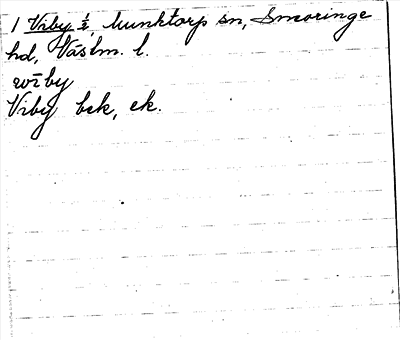 1 Viby ½, Munktorp sn, Snevringe
hd, Västm. l.
wīby
Viby bek, ek.